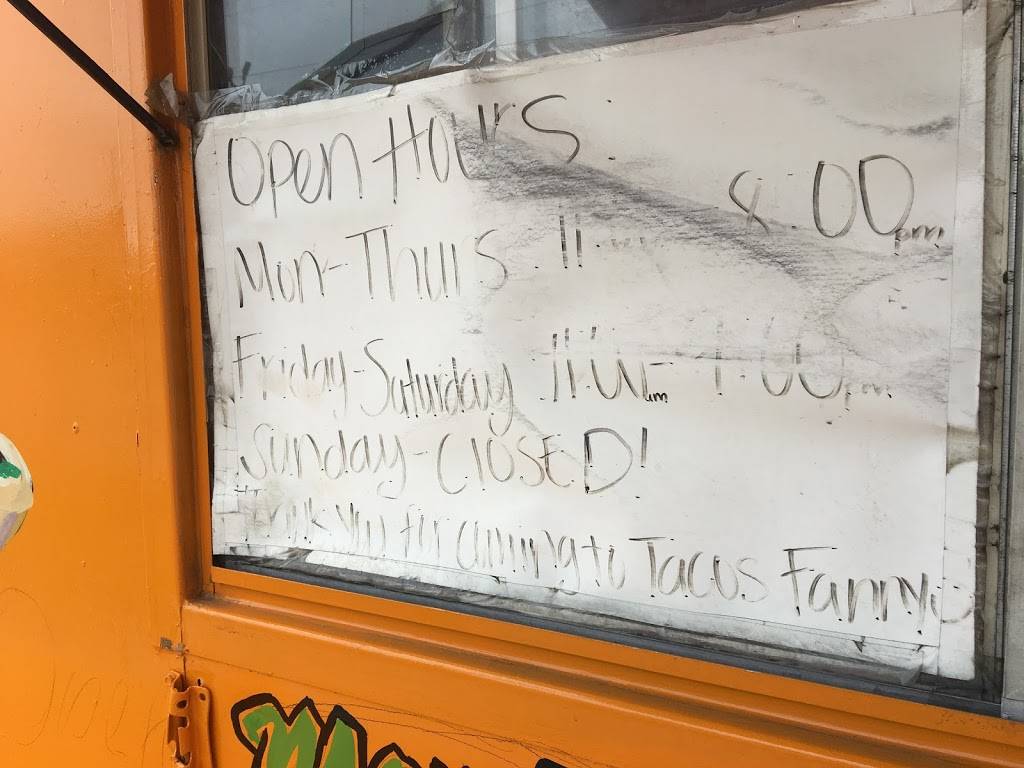 Open Hours:
Mon-Thurs 11 8:00pm
Friday-Saturday 11:00am
Sunday-CLOSED!
Thank you for coming to Tacos Fanny